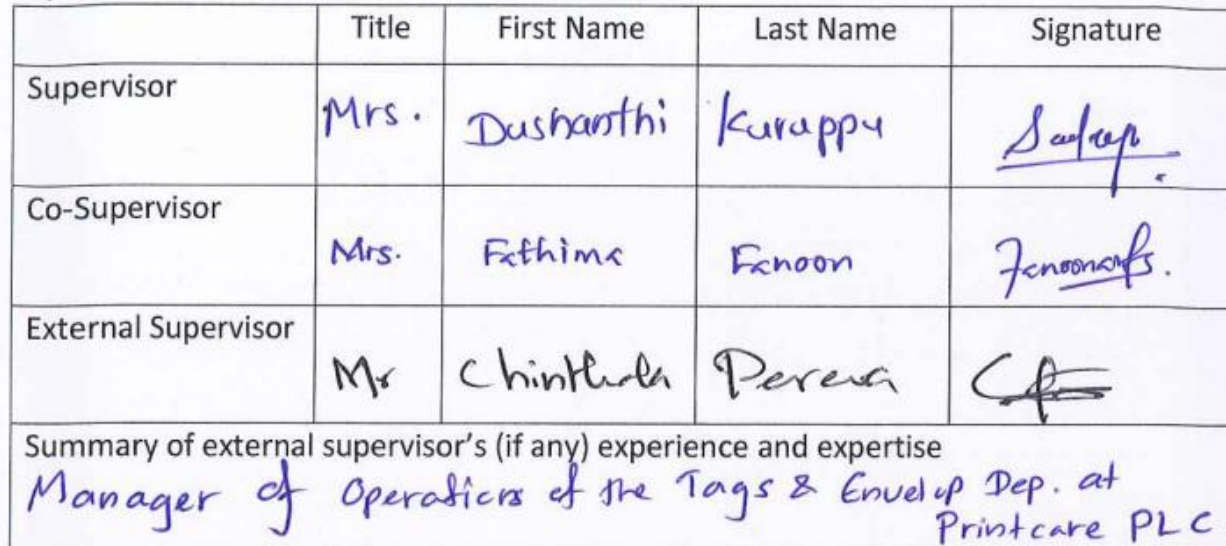 Title First Name Last Name Signature
Supervisor
Mrs. Dushanthi Kuruppu
Co-Supervisor
Mrs. Fathima Fanoon
External Supervisor
Mr Perera
Summary of external supervisor's (if any) experience and expertise
Manager of Operations of the Tags & Envelop Dep. at
Printcare PLC